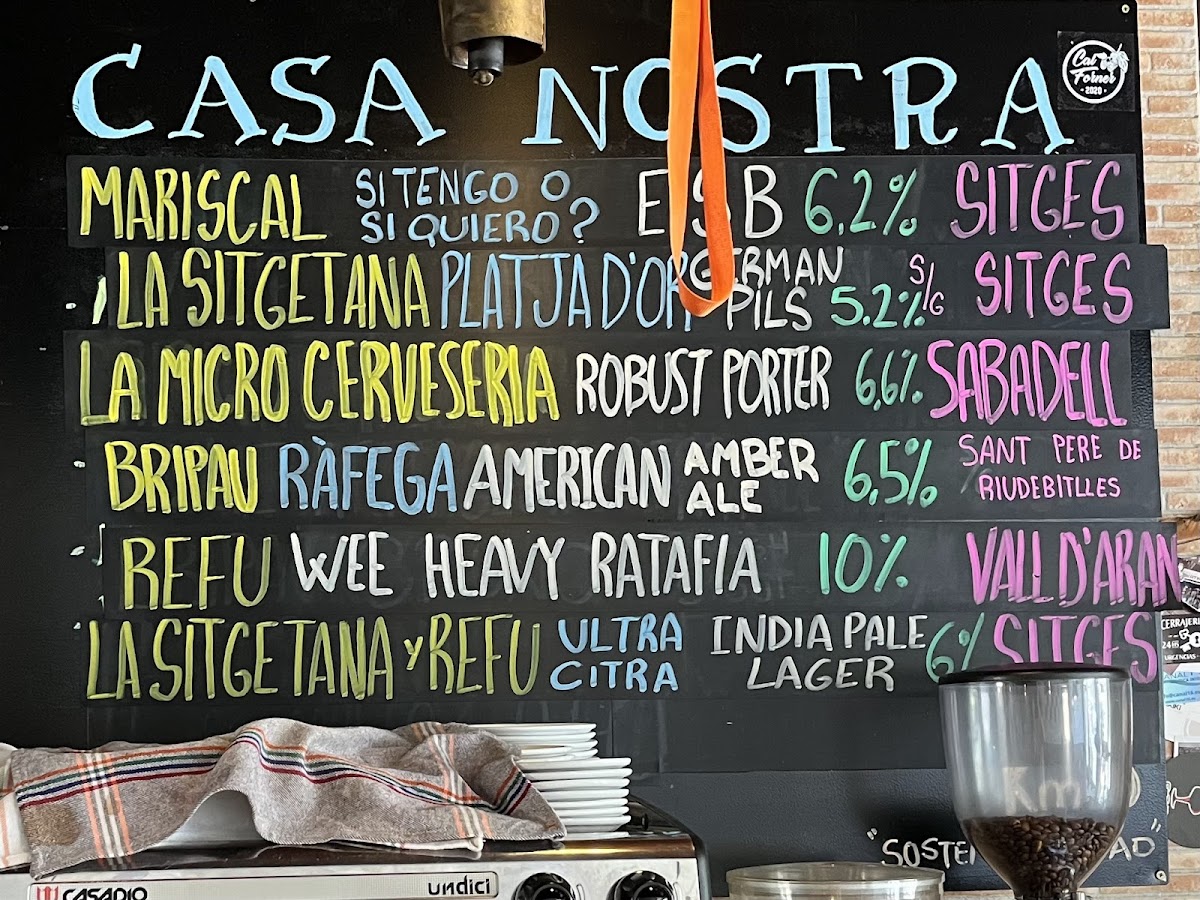 CASA NOSTRA
Cal Forner
2020
MARISCAL SI TENGO O SI QUIERO? ESB 6,2% SITGES
LA SITGETANA PLATJA D'OR GERMAN PILS 5.2% S/G SITGES
LA MICRO CERVESERIA ROBUST PORTER 6,6% SABADELL
BRIPAU RÀFEGA AMERICAN AMBER ALE 6,5% SANT PERE DE RIUDEBITLLES
REFU WEE HEAVY RATAFIA 10% VALL D'ARAN
LA SITGETANA y REFU ULTRA CITRA INDIA PALE LAGER 6% SITGES
CERRAJERI
24 HS
URGENCIAS
Km
CASADIO undici